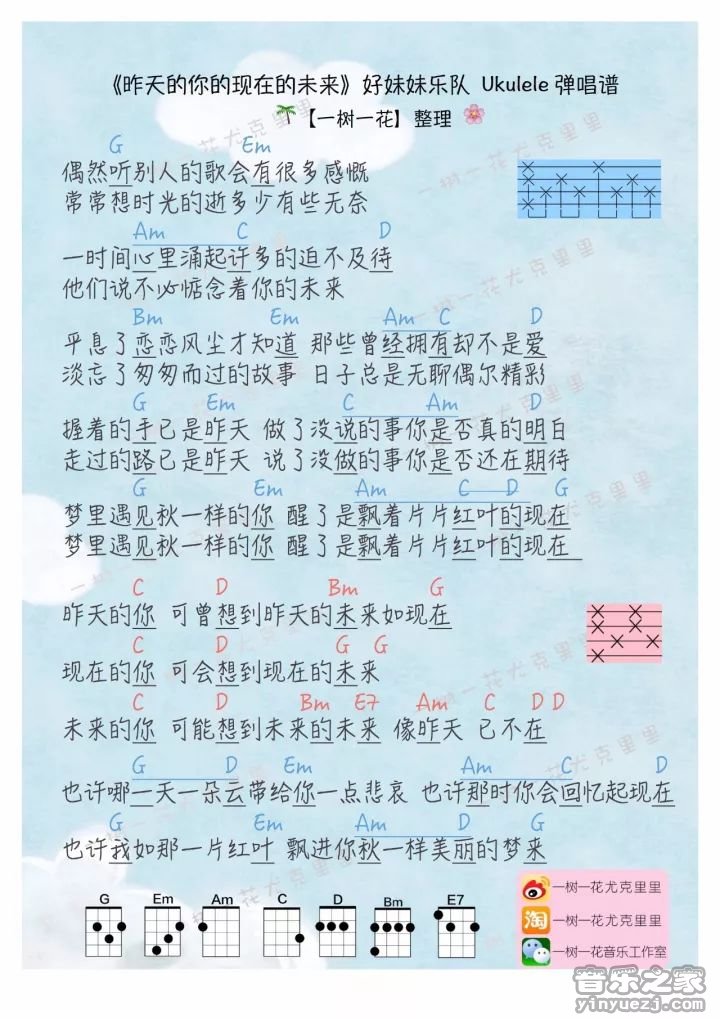 《昨天的你的现在的未来》好妹妹乐队 Ukulele 弹唱谱
【一树一花】整理
G Em
偶然听别人的歌会有很多感慨
常常想时光的逝多少有些无奈
Am C D
一时间心里涌起许多的迫不及待
他们说不必惦念着你的未来
Bm Em Am C D
平息了恋恋风尘才知道 那些曾经拥有却不是爱
淡忘了匆匆而过的故事 日子总是无聊偶尔精彩
G Em C Am D
握着的手已是昨天 做了没说的事你是否真的明白
走过的路已是昨天 说了没做的事你是否还在期待
G Em Am C D G
梦里遇见秋一样的你 醒了是飘着片片红叶的现在
梦里遇见秋一样的你 醒了是飘着片片红叶的现在
C D Bm G
昨天的你 可曾想到昨天的未来如现在
C D G G
现在的你 可会想到现在的未来
C D Bm E7 Am C D D
未来的你 可能想到未来的未来 像昨天 已不在
G D Em Am C D
也许哪一天一朵云带给你一点悲哀 也许那时你会回忆起现在
G Em Am D G
也许我如那一片红叶 飘进你秋一样美丽的梦来
G Em Am C D Bm E7
一树一花尤克里里
淘 一树一花尤克里里
一树一花音乐工作室
音乐之家
yinyuezj.com